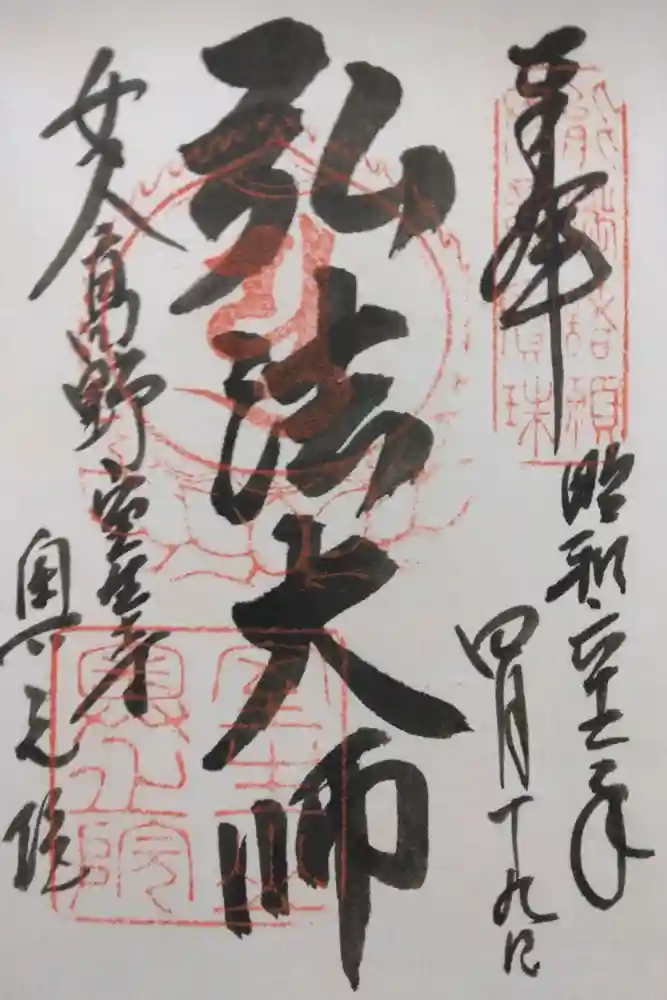 奉拝
昭和
四月十九日
弘法大師
女人高野 室生寺
奥之院
能満諸願
寶珠
室生山
奥之院